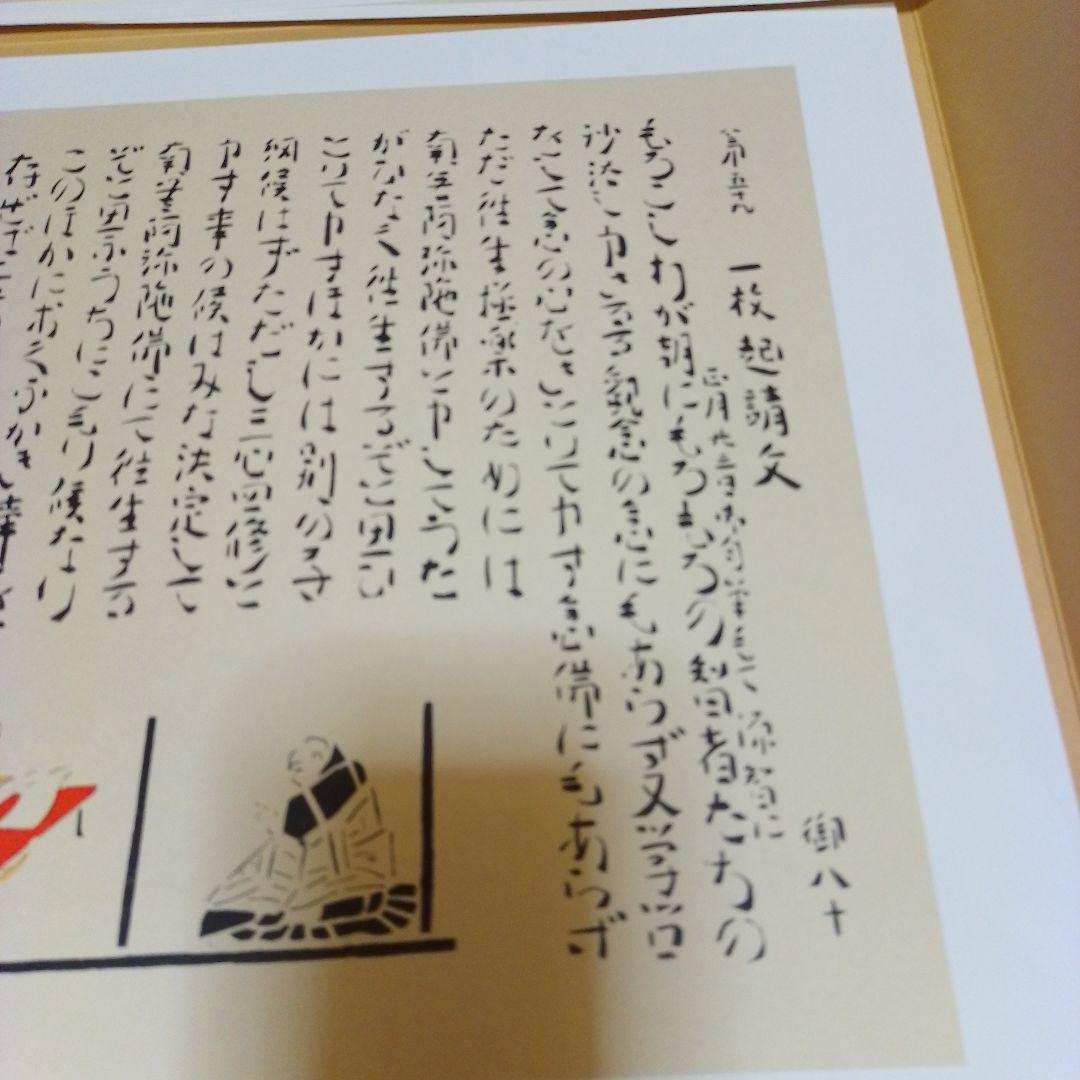 第五十九
一枚起請文 御八十
正月廿三日 源智に
もろこしわが朝にもろもろの智者たちの
沙汰し申さるる觀念の念にもあらず又学问
をして念の心をさとりて申す念佛にもあらず
ただ往生極楽のためには
南無阿弥陀佛と申してうた
がひなく往生するぞと思ひ
とりて申すほかには別のさ
候はずただし三心四修と
申す事の候はみな決定して
南無阿弥陀佛にて往生する
ぞと思ふうちにこもり候なり
このほかにおくふかき事